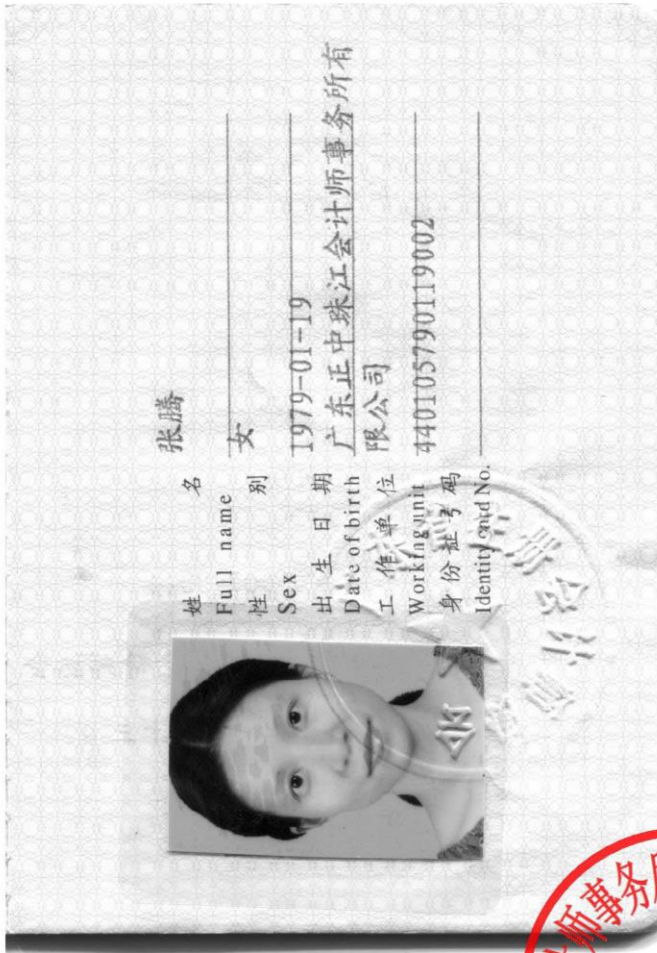 姓 名 张腾
Full name
性 别 女
Sex
出 生 日 期 1979-01-19
Date of birth
工 作 单 位 广东正中珠江会计师事务所有
Working unit 限公司
身份证号码 440105790119002
Identity card No.
师事务所